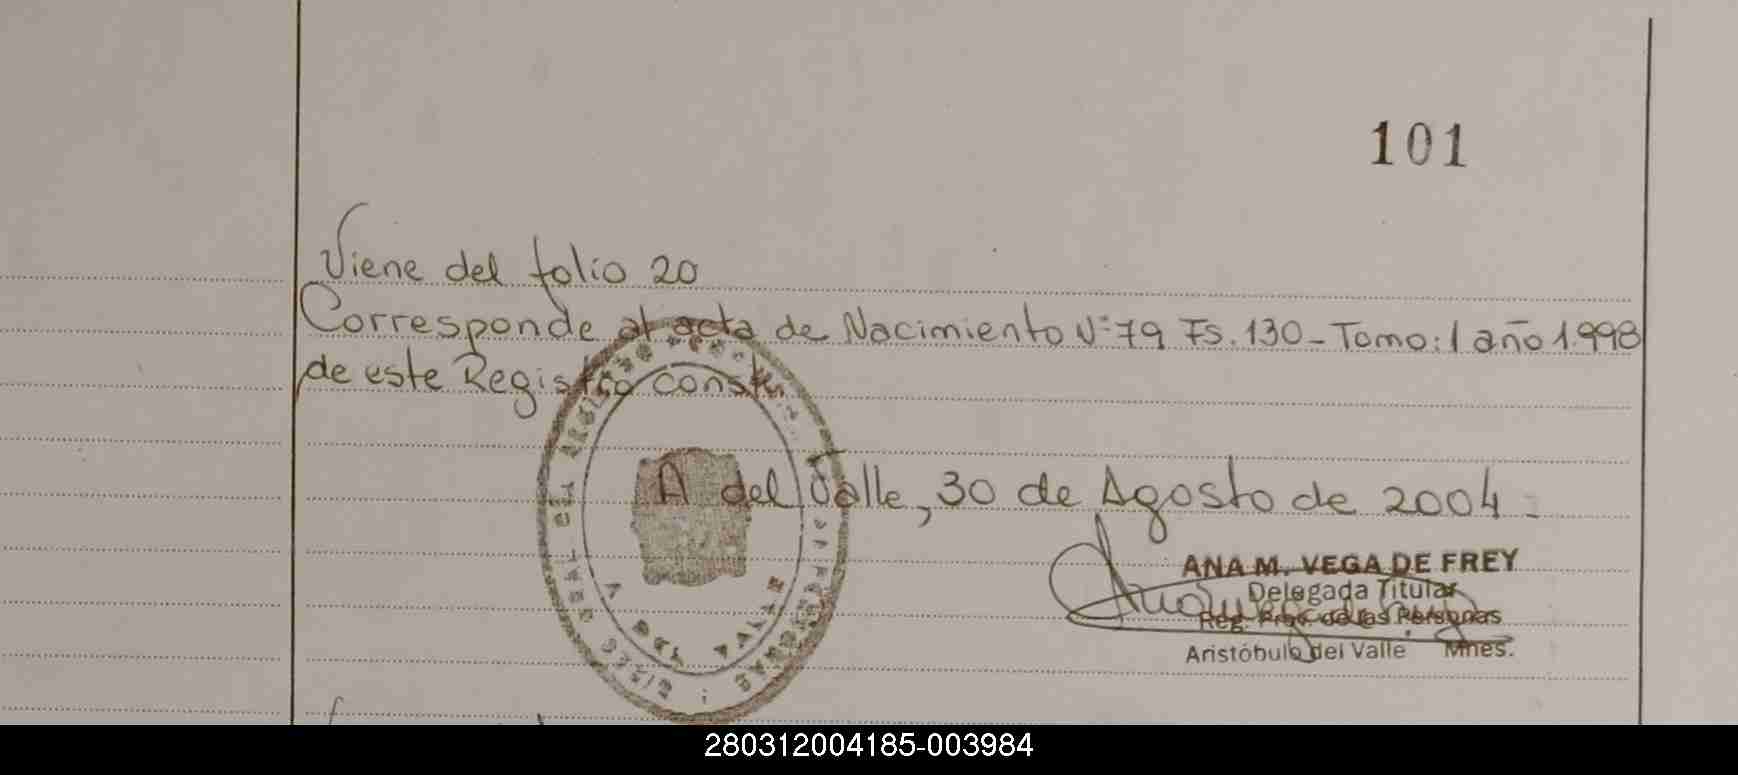 101
Viene del folio 20
Corresponde al acta de Nacimiento Nº 79 Fs. 130 - Tomo: 1 año 1.998
de este Registro conste.
A del Valle, 30 de Agosto de 2004 -
ANA M. VEGA DE FREY
Delegada Titular
Reg. Prov. de las Personas
Aristóbulo del Valle Mnes.
A DEL VALLE
280312004185-003984